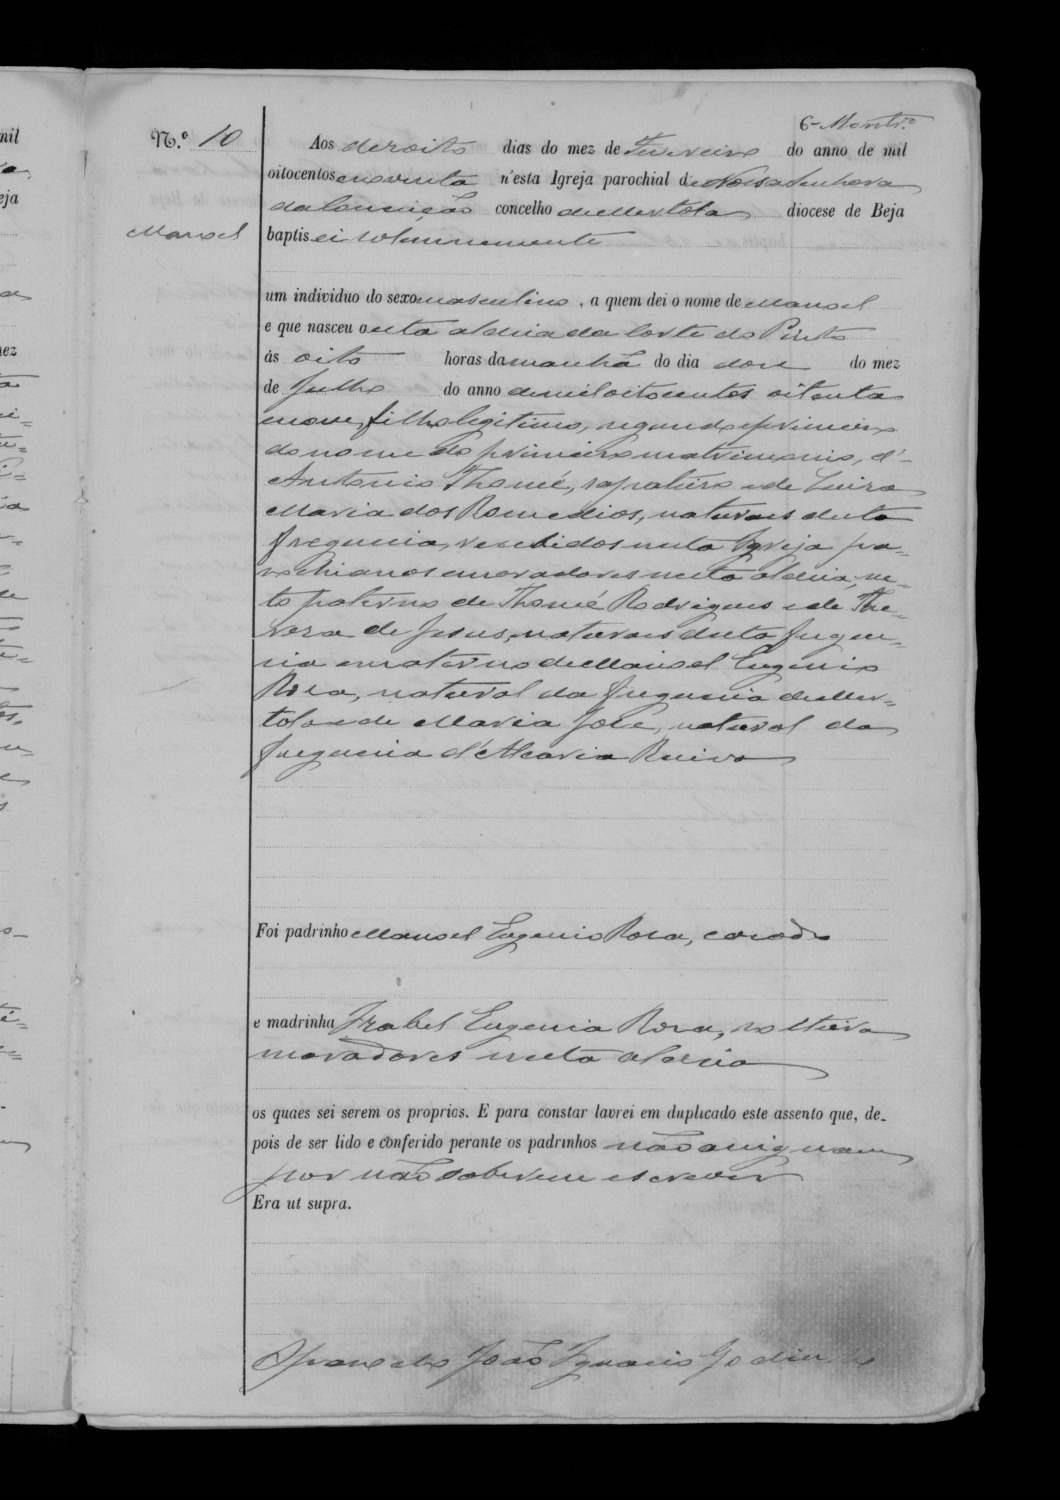 6 - Montr.º
N.º 10
Aos dezoito dias do mez de Fevereiro do anno de mil
oitocentos e noventa n'esta Igreja parochial de Nossa Senhora
da Conceição concelho de Mertola diocese de Beja
Manoel
baptisei solemnemente
um individuo do sexo masculino, a quem dei o nome de Manoel
e que nasceu n'esta aldeia da Corte do Pinto
ás oito horas da manhã do dia doze do mez
de Julho do anno de mil oitocentos oitenta
e nove, filho legitimo, segundo e primeiro
do nome do primeiro matrimonio, d'
Antonio Thomé, sapateiro e de Luiza
Maria dos Remedios, naturaes desta
freguesia, recebidos nesta Igreja pa=
rochianos e moradores nesta aldeia; ne=
to paterno de Thomé Rodrigues e de The=
reza de Jesus, naturaes desta fregue=
sia e materno de Manoel Eugenio
Rosa, natural da freguesia de Mer=
tola e de Maria José, natural da
freguesia d'Alcaria Ruiva
Foi padrinho Manoel Eugenio Rosa, casado
e madrinha Izabel Eugenia Rosa, solteira
moradores nesta aldeia
os quaes sei serem os proprios. E para constar lavrei em duplicado este assento que, de-
pois de ser lido e conferido perante os padrinhos não assignam
por não saberem escrever
Era ut supra.
João Ignacio